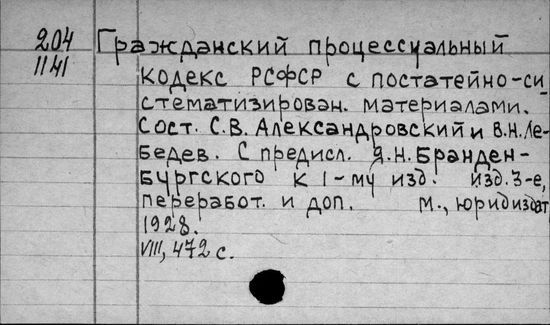 204
1141
Гражданский процессуальный
кодекс РСФСР с постатейно-си
стематизирован. материалами.
Сост. С.В. Александровский и В.Н. Ле-
бедев. С предисл. Я.Н. Бранден-
бургского к 1-му изд. изд. 3-е,
переработ. и доп. М., юридиздат
1928.
VIII, 472 с.